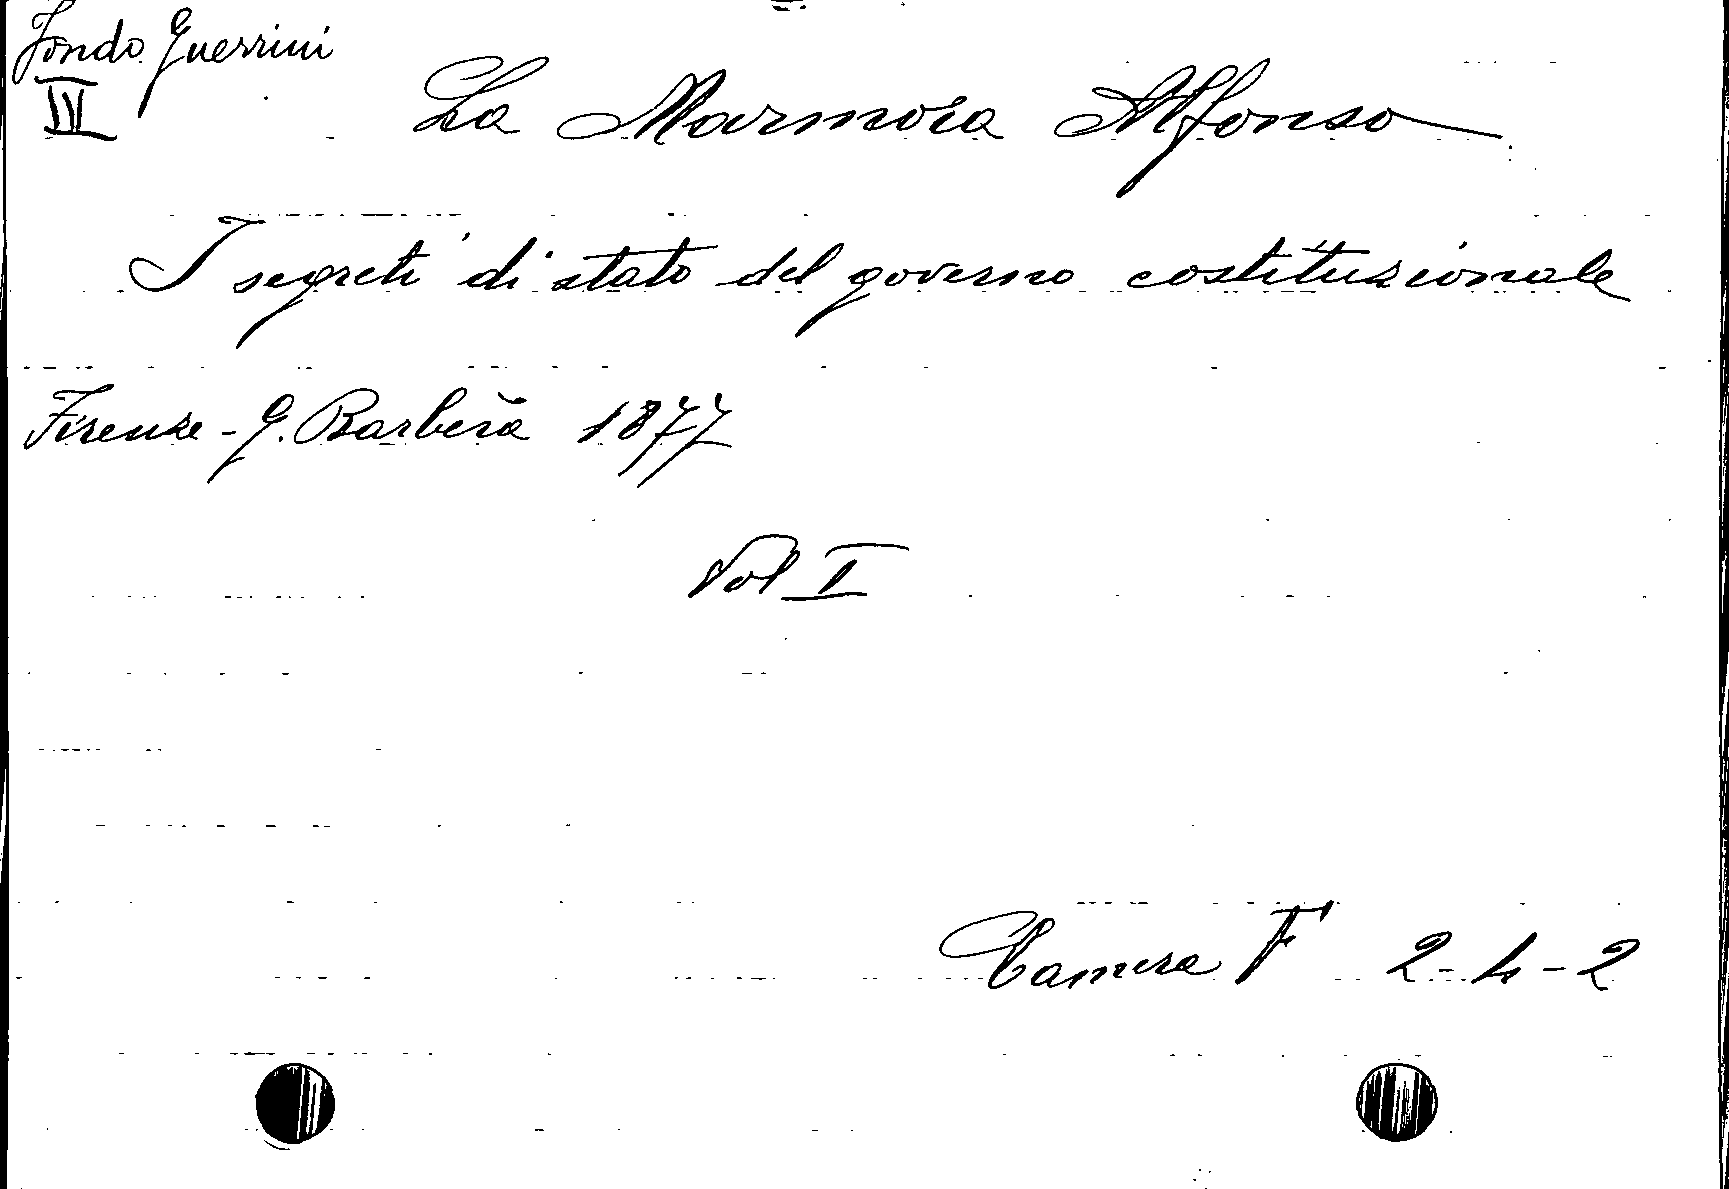 Fondo Guerrini
III
La Marmora Alfonso
I segreti di stato del governo costituzionale
Firenze - G. Barbèra 1877
Vol I
Camera F 2-4-2